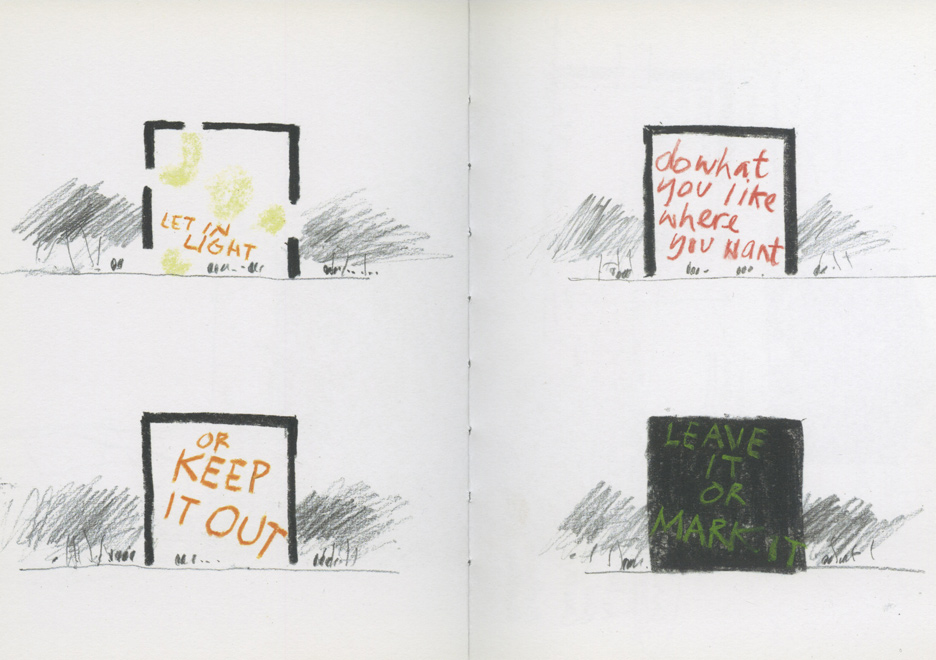 LET IN
LIGHT
OR
KEEP
IT OUT
do what
you like
where
you want
LEAVE
IT
OR
MARK IT